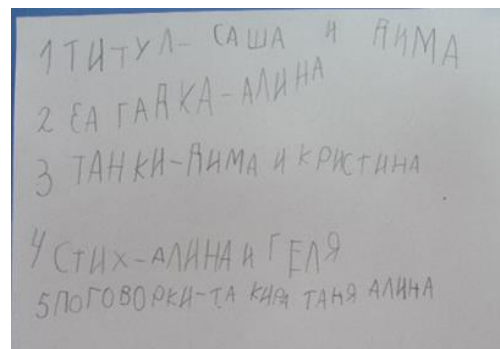 1 ТИТУЛ- САША И ДИМА
2 ЗАГАДКА-АЛИНА
3 ТАНКИ-ДИМА И КРИСТИНА
4 СТИХ-АЛИНА И ГЕЛЯ
5 ПОГОВОРКИ-ТА КИРА ТАНЯ АЛИНА